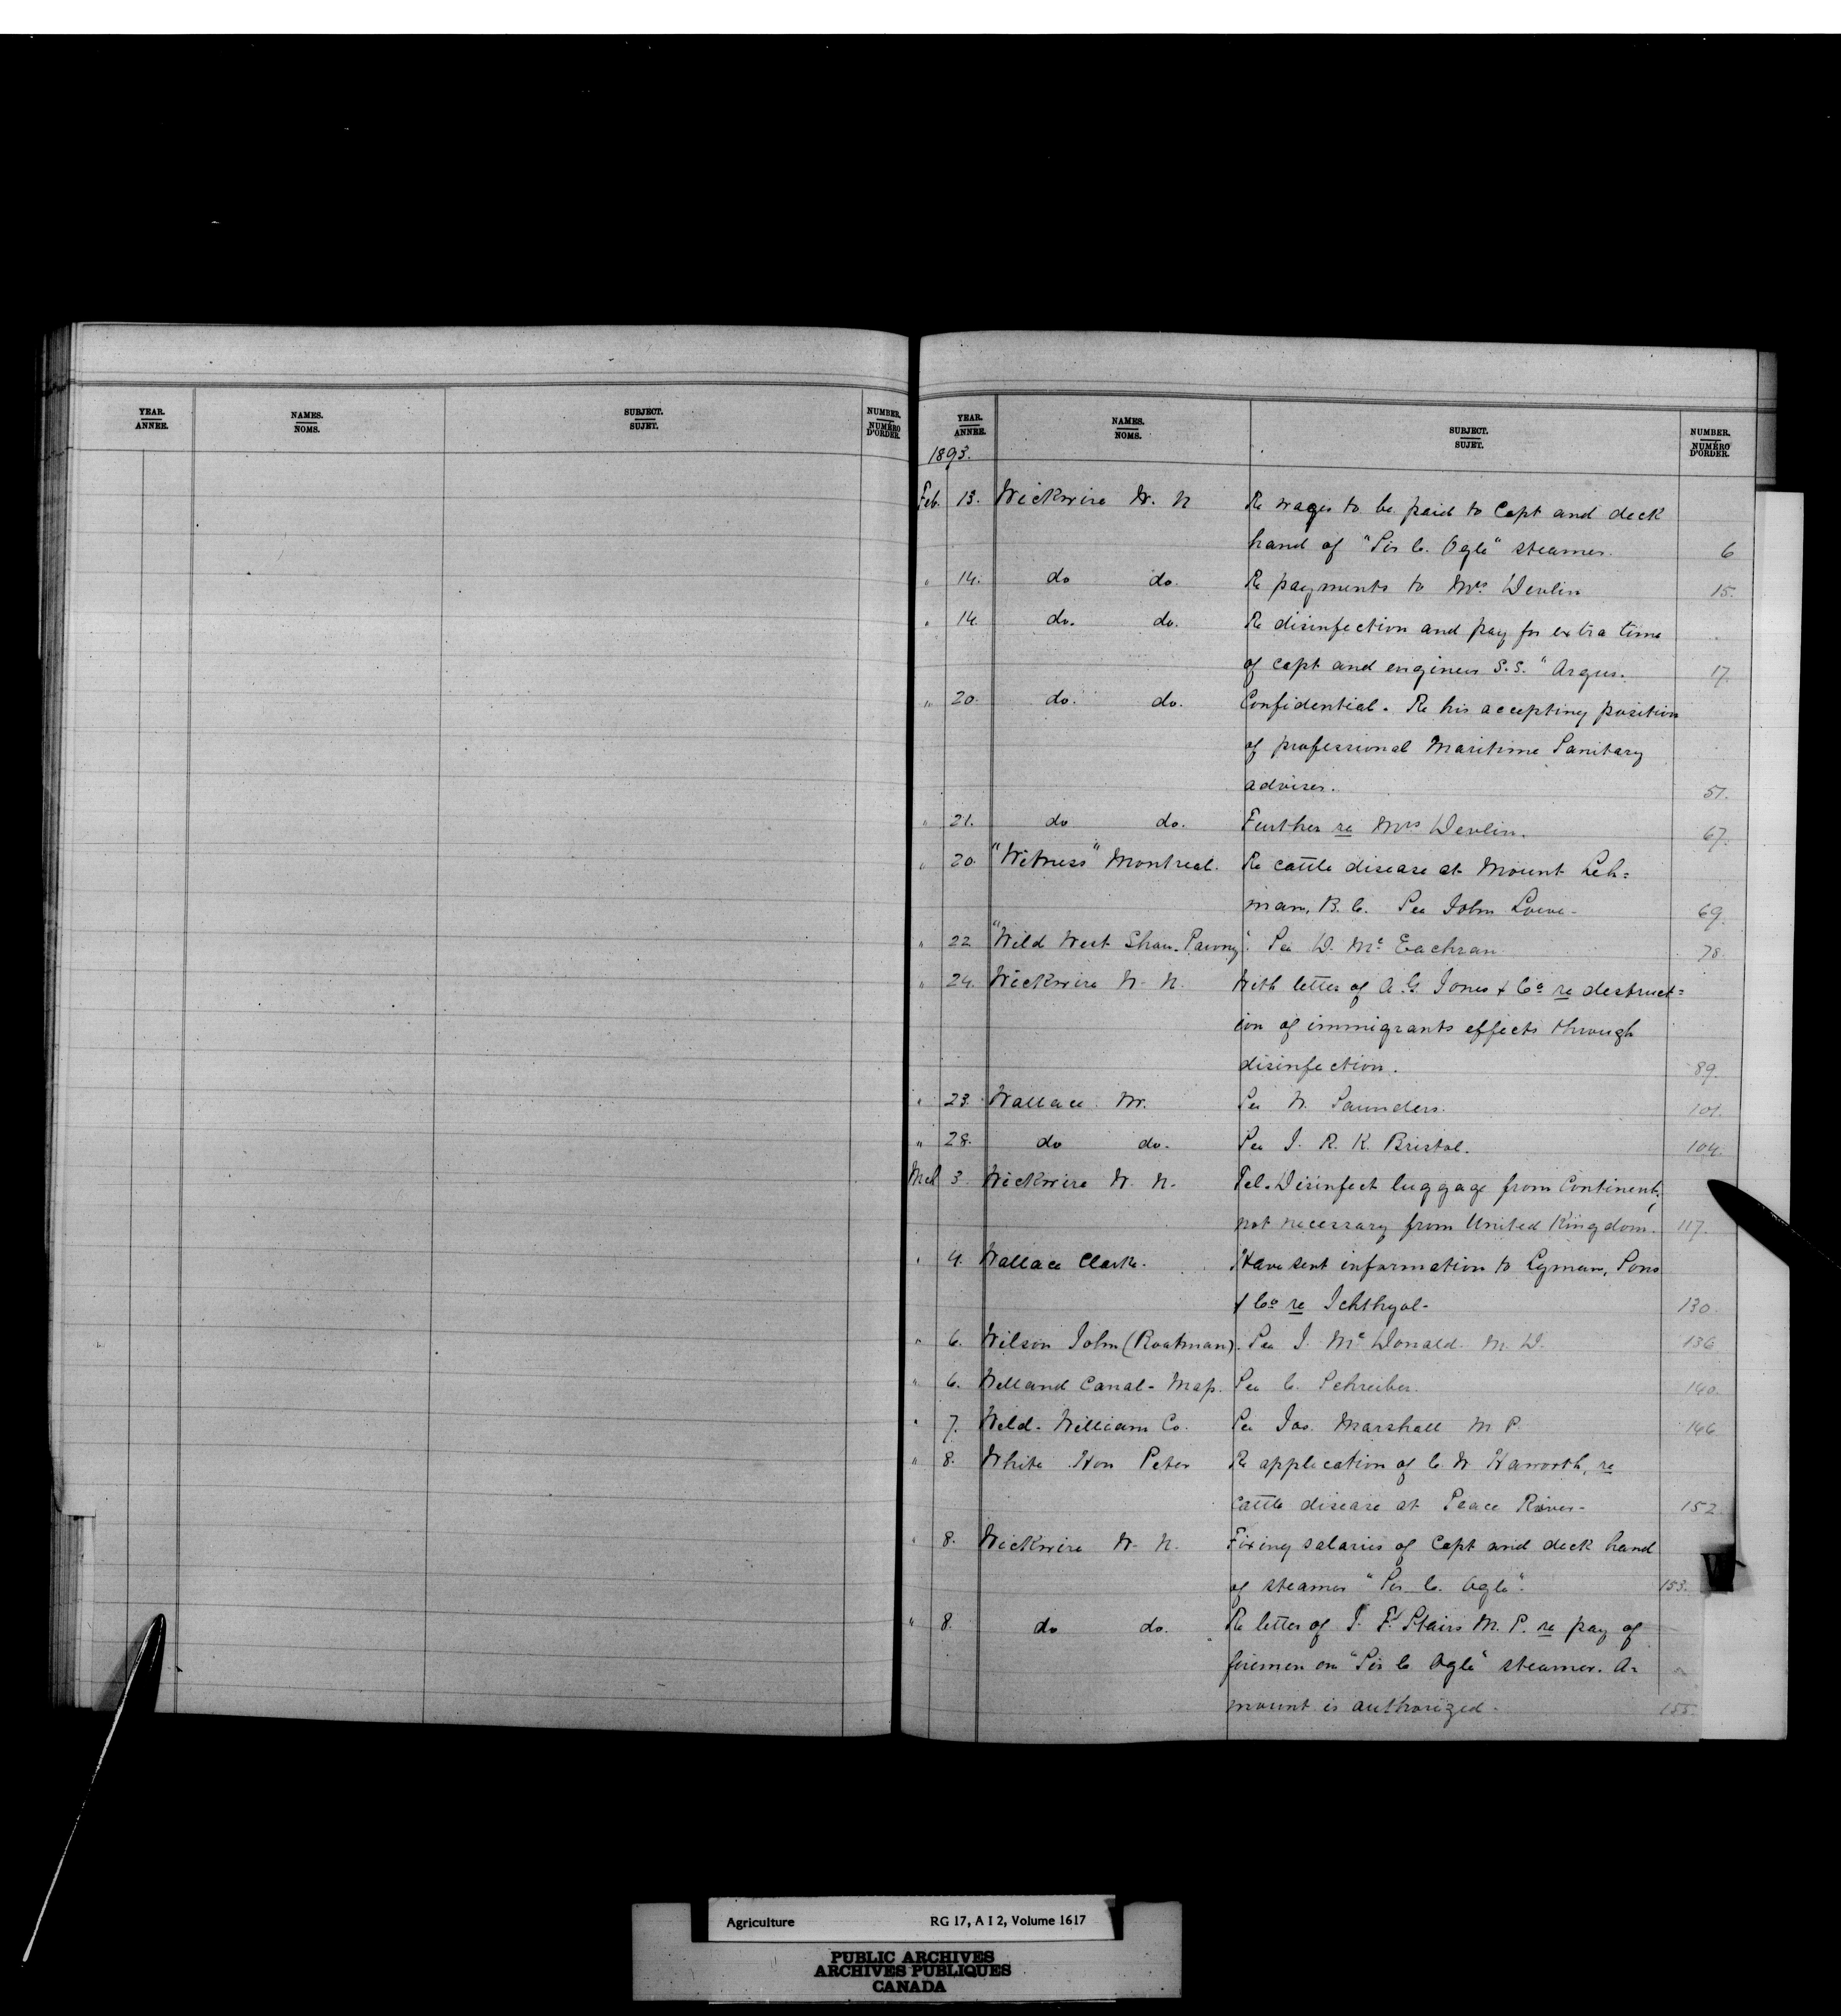 YEAR. NAMES. SUBJECT. NUMBER.
ANNEE. NOMS. SUJET. NUMÉRO D'ORDER.
YEAR. NAMES. SUBJECT. NUMBER.
ANNEE. NOMS. SUJET. NUMÉRO D'ORDER.
1893.
Feb. 13. Wickwire W. N Re wages to be paid to Capt and deck
hand of "Sir C. Ogle" steamer. 6
" 14. do do. Re payments to Mrs. Devlin 15.
" 14. do. do. Re disinfection and pay for extra time
of capt and engineer S.S. "Argus. 17.
" 20. do. do. Confidential. Re his accepting position
of professional Maritime Sanitary
adviser. 51.
" 21. do do. Further re Mrs Devlin. 67.
" 20. "Witness" Montreal. Re cattle disease at Mount Leh=
man, B. C. See John Lowe - 69.
" 22 "Wild West Show-Pawny". See D. Mc Eachran 78.
" 24. Wickwire W. N. With letter of A. G. Jones & Co re destruct=
ion of immigrants effects through
disinfection. 89.
" 23. Wallace W. See W. Saunders. 101.
" 28. do do. See J. R. K. Bristol. 104.
Mch 3. Wickwire W. N. Tel. Disinfect luggage from Continent,
not necessary from United Kingdom. 117.
" 4. Wallace Clark. Have sent information to Lyman, Sons
& Co re Ichthyol- 130.
" 6. Wilson John (Boatman). See J. Mc Donald. M. D. 136
" 6. Welland Canal- Map. See C. Schreiber. 140.
" 7. Weld. William Co. See Jas. Marshall M P. 146
" 8. White Hon Peter Re application of C. W Haworth, re
Cattle disease at Peace River- 152
" 8. Wickwire W. N. Fixing salaries of Capt and deck hand
of steamer "Sir C. Ogle". 153.
" 8. do do. Re letter of J. F. Stairs M. P. re pay of
firemen on "Sir C. Ogle" steamer. A=
mount is authorized - 155.
W
Agriculture RG 17, A I 2, Volume 1617
PUBLIC ARCHIVES
ARCHIVES PUBLIQUES
CANADA